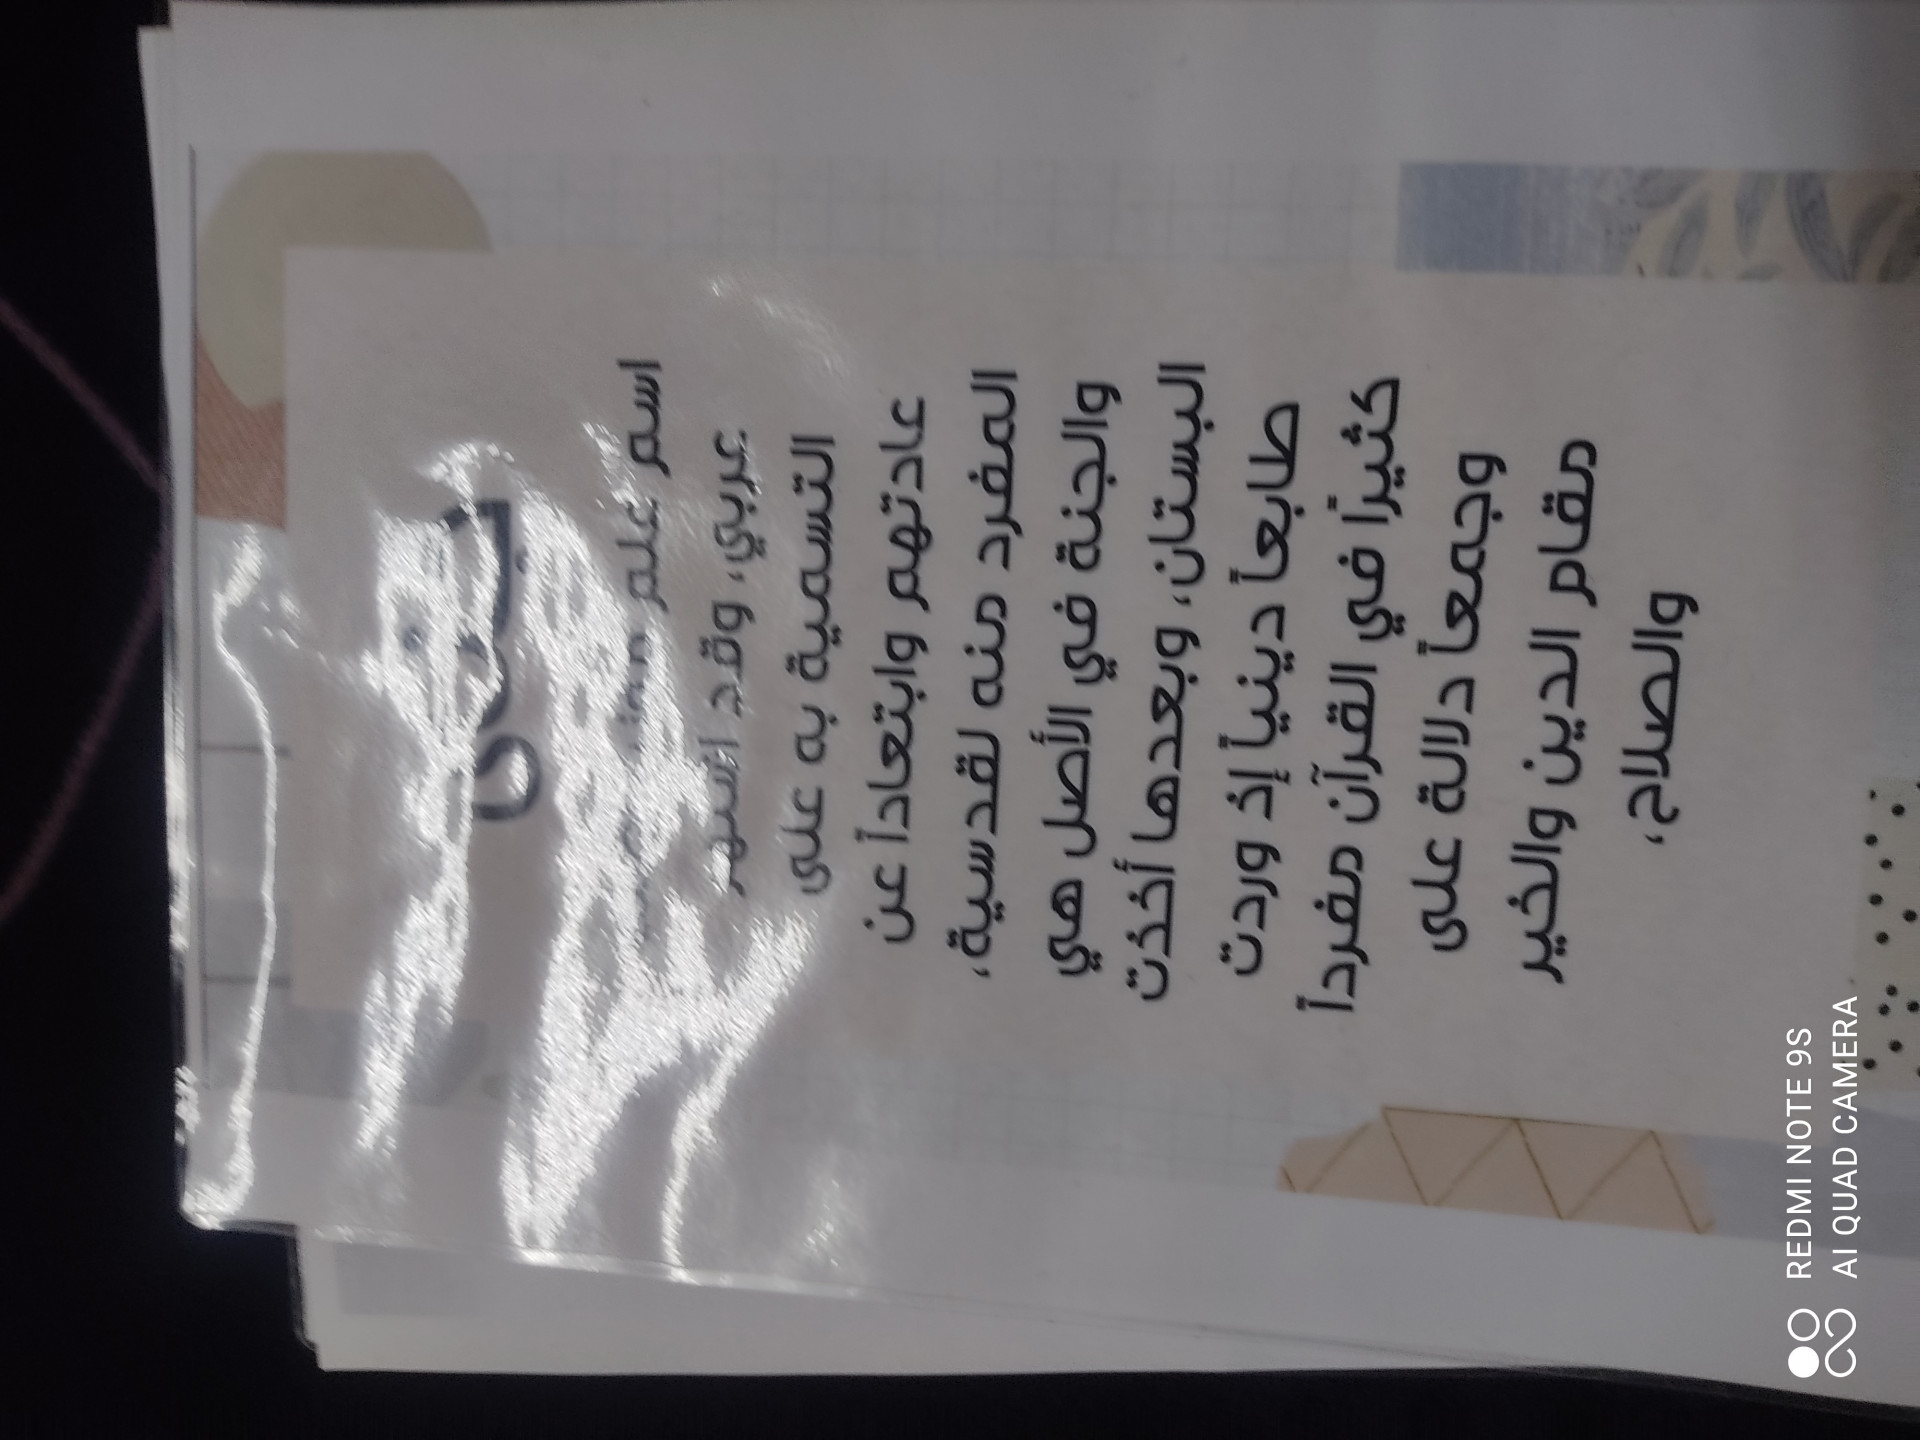 اسم علم
عربي، وقد اشتهر
التسمية به على
عادتهم وابتعاداً عن
المفرد منه لقدسية،
والجنة في الأصل هي
البستان، وبعدها أخذت
طابعاً دينياً إذ وردت
كثيراً في القرآن مفرداً
وجمعاً دلالة على
مقام الدين والخير
والصلاح،
REDMI NOTE 9S
AI QUAD CAMERA